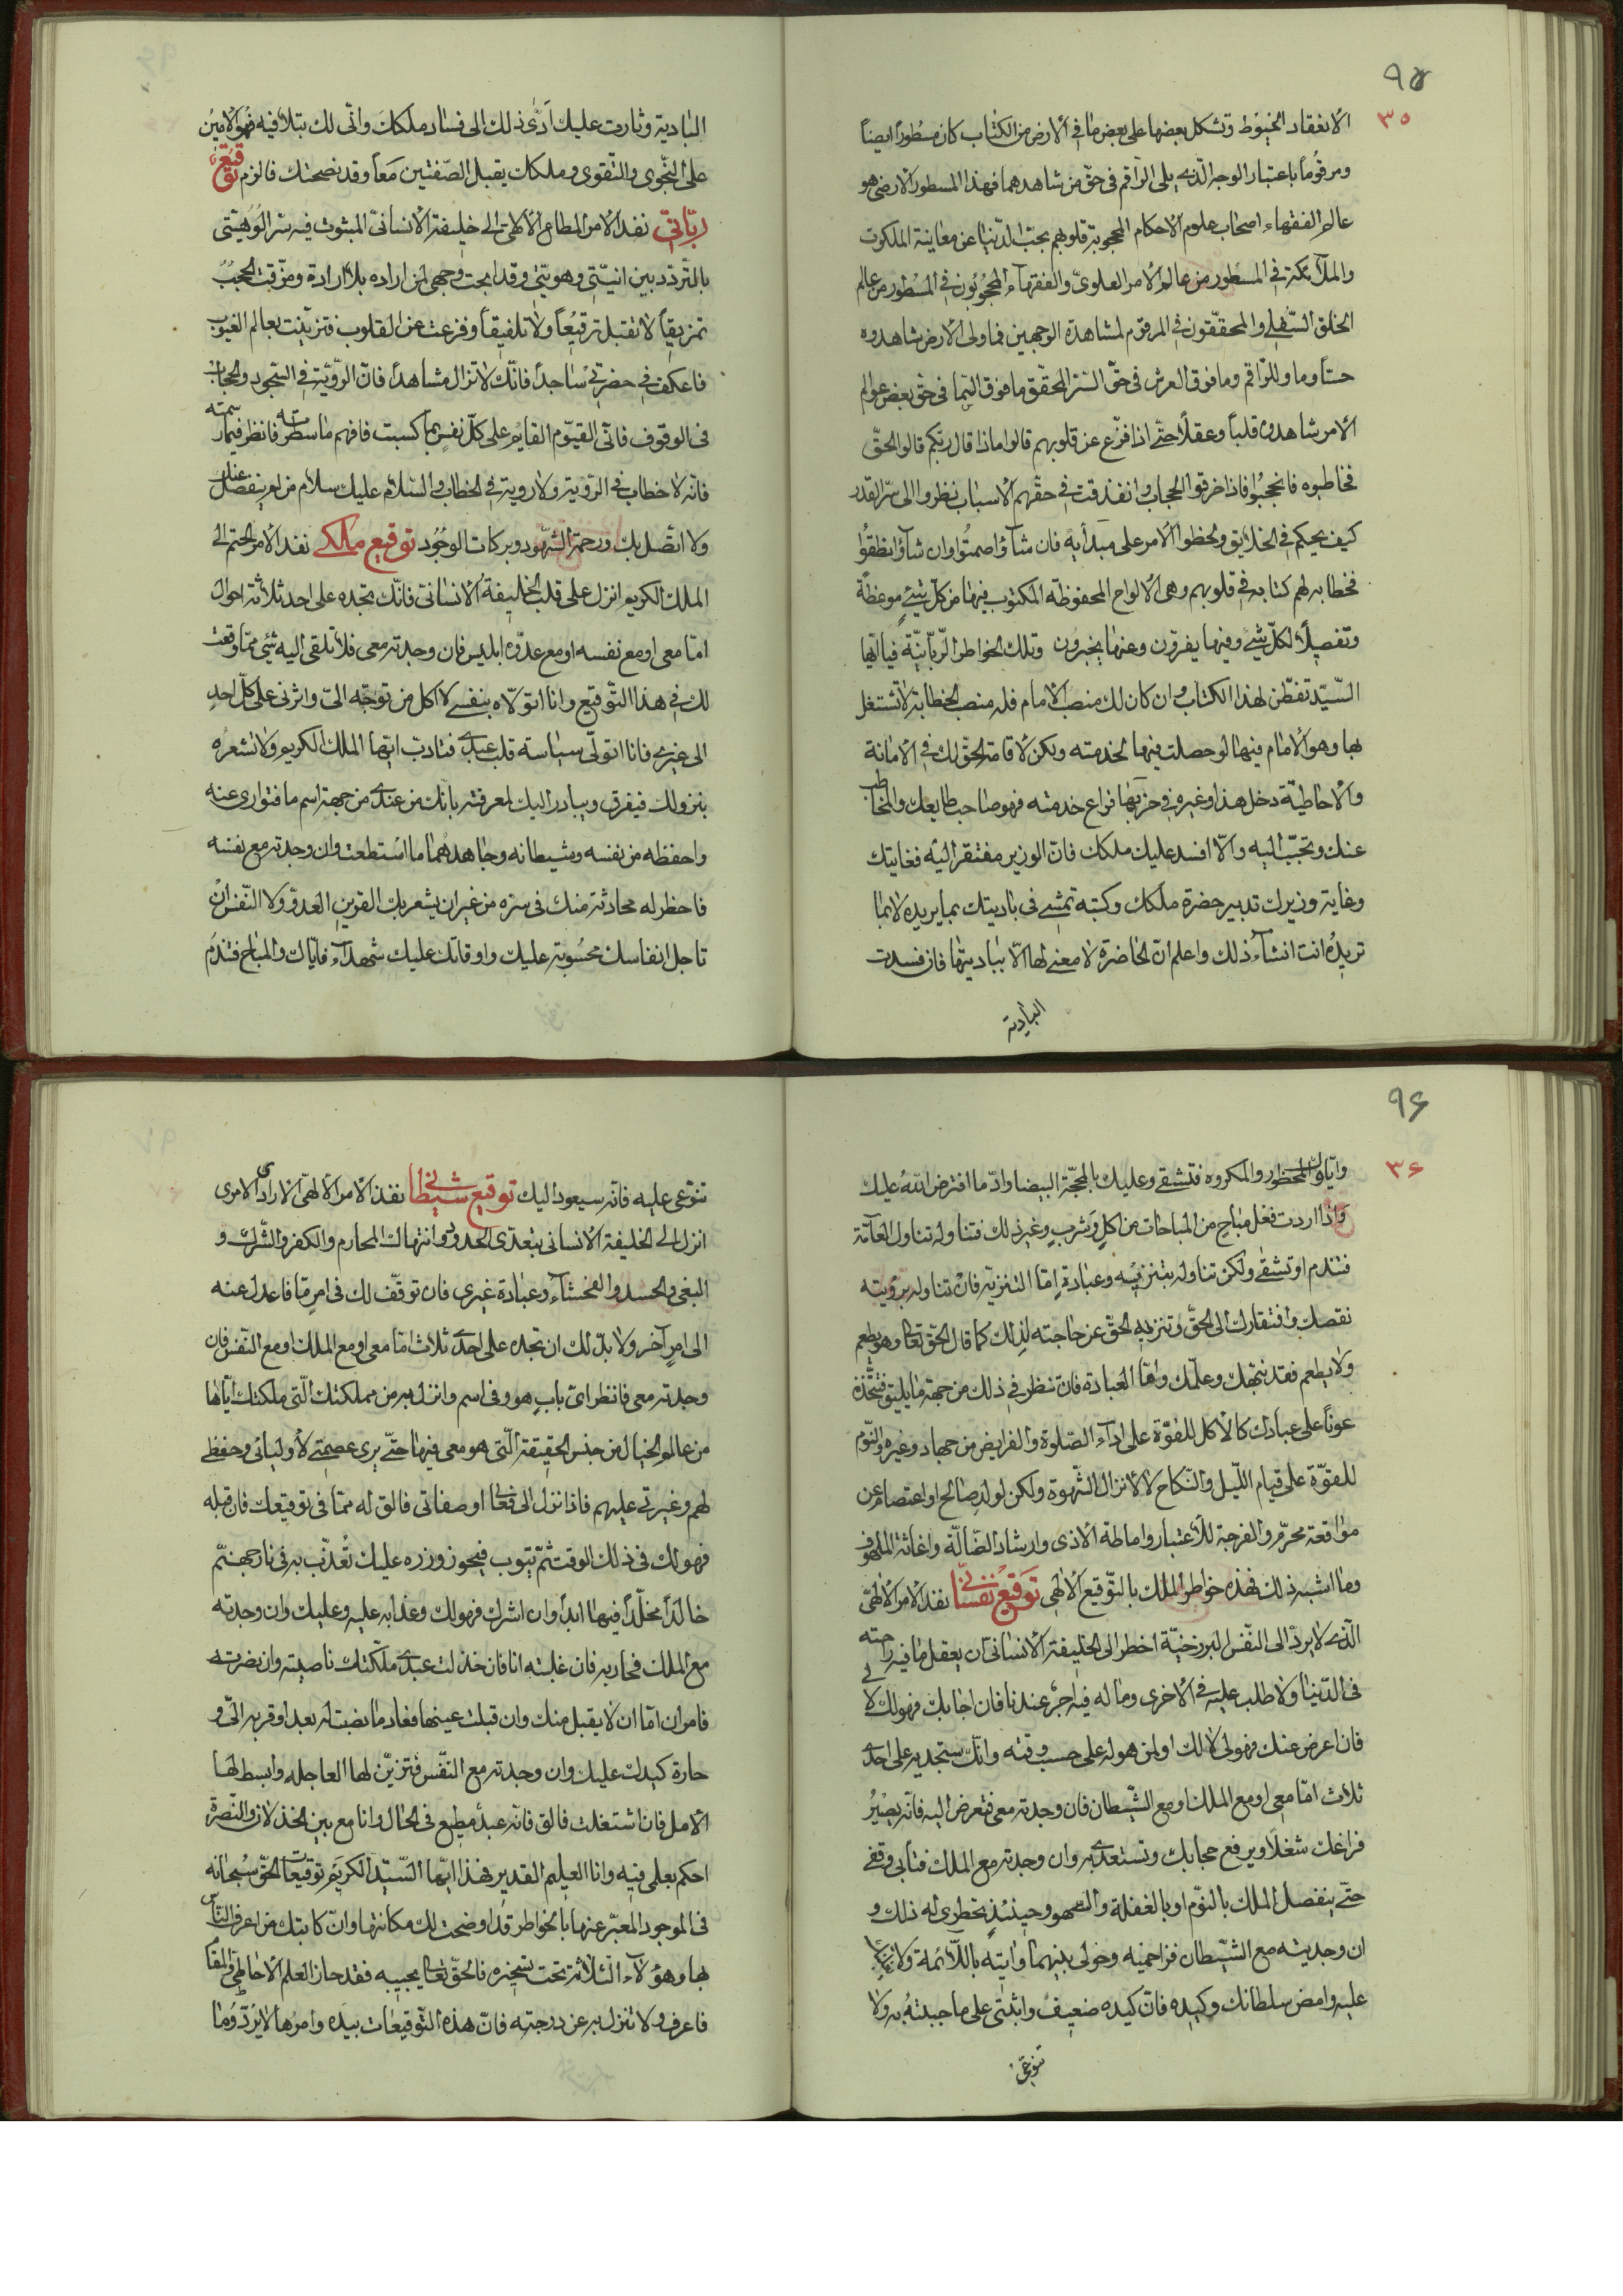 ٩٥
٣٥
الانعقاد الخيوط وتشكل بعضها على بعض ما في الارض من الكتاب كان مسطوراً ايضاً
ومرقوماً باعتبار الوجه الّذى يلى الراقم فى حقّ من شاهدهما فهذا المسطور الارضى هو
عالم الفقهاء اصحاب علوم الاحكام المحجوبة قلوبهم بحبّ الدّنيا عن معاينة الملكوت
والملآئكة فى المسطور من عالم الامر العلوىّ والفقهآء المحجوبون فى المسطور من عالم
الخلق السّفلى والمحققّون فى المرقوم لمشاهدة الوجهين فما ولى الارض شاهدوه
حسّاً وما ولى الراقم وما فوق العرش فى حقّ السّر المحقّق ما فوق السّما فى حقّ بعض عوالم
الامر شاهدوه قلباً وعقلاً حتّى اذا فزّع عن قلوبهم قالوا ماذا قال ربّكم قالوا الحقّ
فخاطبوه فانحجبوا فاذا خرقوا الحجاب وانفذقت فى حقّهم الاسباب نظروا الى سرّ القدر
كيف يحكم فى الخلايق ولحظوا الامر على مبدأيه فان شآؤا صمتوا وان شآؤا نطقوا
فخطابه لهم كتابه فى قلوبهم وهى الالواح المحفوظة المكتوب فيها من كلّ شئ موعظة
وتفصيلاً لكلّ شئ وفيها يفرقون وعنها يخبرون وتلك الخواطر الرّبّانيّة فيا ايّها
السّيّد تفطّن لهذا الكتاب وان كان لك منصب الامام فله منصب الخطابة لا تشتغل
بها وهو الامام فيها لو حصلت فيها لخدمته ولكن لاقامة الحقّ لك فى الامانة
والاحاطيّة دخل هذا وغيره فى حزبها فراع خدمته فهو صاحب طابعك والمخاطب
عنك وتحبّب اليه والّا افسد عليك ملكك فانّ الوزير مفتقر اليه فغايتك
وغاية وزيرك تدبير حضرة ملكك وكتبه تمشى فى باديتك بما يريده لا بما
تريده انت انشآء ذلك واعلم انّ الحاضرة لا معنى لها الّا بباديتها فان فسدت
البادية
البادية وثارت عليك ادّى ذلك الى فساد ملكك وانّى لك بتلافيه فهو الامين
على النّجوى والتّقوى وملكك يقبل الصّفتين معاً وقد نصحتك فالزم توقيع
ربّانىّ نفذ الامر المطاع الالهىّ الى خليفته الانسانىّ المبثوث فيه سرّ الوهيّتى
بالتّردّد بين انيّتى وهويّتى وقد ابحت وجهى لمن اراده بلا ارادة ومزّقت الحجب
تمزيقاً لا تقبل ترقيعاً ولا تلفيقاً وفزعت عن القلوب فتزيّنت بعالم الغيوب
فاعكف فى حضرتى ساجداً فانّك لا تزال مشاهداً فانّ الرؤية فى السّجود والحجاب
فى الوقوف فانّى القيّوم القايم على كلّ نفس بما كسبت فافهم ما سطرته فانظر فيما رسمته
فانّه لا خطاب فى الرّؤية ولا روية فى الخطاب والسّلام عليك سلام من لم ينفصل عنك
ولا اتّصل بك ورحمة الشّهود وبركات الوجود توقيع ملكى نفذ الامر الحتم الى
الملك الكريم انزل على قلب الخليفة الانسانىّ فانّك تجده على احد ثلاثة احوال
امّا معى او مع نفسه او مع عدوّه ابليس فان وجدته معى فلا تلقى اليه شئ ممّا وقعت
لك فى هذا التّوقيع وانا اتولّاه بنفسى لا اكل من توجّه الىّ واثرنى على كلّ احد
الى غيرى فانا اتولّى سياسة قلب عبدى فتادّب ايّها الملك الكريم ولا تشعره
بنزولك فيفرق ويبادر اليك لمعرفته بانّك من عندى من جهة اسم ما فتوارى عنه
واحفظه من نفسه وشيطانه وجاهدهما ما استطعت وان وجدته مع نفسه
فاخطر له محادثة منك فى سرّه من غير ان يشعر بك القرين العدوّ ولا النّفس ان
تاجل انفاسك محسوبة عليك واوقاتك عليك شهدآء فايّاك والمباح فتندم
٩۶
٣۶
وايّاك والمحظور والمكروه فتشقى وعليك بالمحجّة البيضا وادّ ما افترض الله عليك
واذا اردت فعل مباح من المباحات من اكل وشرب وغير ذلك فتناوله تناول العآمّة
فتندم او تشقى ولكن تناوله بتنزيه وعبادة امّا التنزيه فان تناوله برؤيته
نقصك وافتقارك الى الحقّ وتنزيه الحقّ عن حاجته لذلك كما قال الحقّ تعالى وهو يطعم
ولا يطعم فقد نبّهك وعلّمك وامّا العبادة فان تنظر فى ذلك من جهة ما يليق فتتّخذه
عوناً على عبادتك كالاكل للقوّة على ادآء الصّلوة والفرايض من جهاد وغيره والنّوم
للقوّة على قيام اللّيل والنّكاح لا لانزال الشّهوة ولكن لولد صالح او اعتصام عن
مواقعة محرّم والفرجة للاعتبار واماطة الاذى وارشاد الضّالّة واغاثة الملهوف
وما اشبه ذلك فهذه خواطر الملك بالتّوقيع الالهى توقيع نفسانى نفذ الامر الالهىّ
الّذى لا يردّ الى النّفس البرزخيّة اخطر الى الخليفة الانسانى ان يعقل ما فيه راحته
فى الدّنيا ولا طلب عليه فى الاخرى وما له فيه اجر عندنا فان اجابك فهو لك لا لى
فان اعرض عنك فهو لى لا لك او لمن هو له على حسب وقته وانّك ستجديه على احدى
ثلاث امّا معى او مع الملك او مع الشّيطان فان وجدته معى فتعرض اليه فانّه يصير
فراغك شغلاً ويرفع حجابك وتستعدّى به وان وجدته مع الملك فتأبى وقفى
حتّى ينفصل الملك بالنوّم او بالغفلة والسّهو وحينئذ يخطرى له ذلك و
ان وجديته مع الشّيطان فزاحميه وحولى بينهما وابته باللّآئمة ولا
عليه وامض سلطانك وكيده فانّ كيده ضعيف واثبتى على ما جبيته به ولا
تنوعى
تنوعى عليه فانّه سيعود اليك توقيع شيطانى نفذ الامر الالهىّ الارادىّ لا الامرى
انزل الى الخليفة الانسانى بتعدّى الحدود وانتهاك المحارم والكفر والشّرك و
البغى والحسد والفحشآء وعبادة غيرى فان توقّف لك فى امر ما فاعدل عنه
الى امر آخر ولا بدّ لك ان تجده على احدى ثلاث امّا معى او مع الملك او مع النّفس فان
وجدته معى فانظر اىّ باب هو وفى اسم وانزل به من مملكتك الّتى ملكتك ايّاها
من عالم الخيال من جنس الحقيقة الّتى هو معى فيها حتّى يرى عصمتى لاوليائى وحفظى
لهم وغيرتى عليهم فاذا نزل الى فعالى او صفاتى فالق له ممّا فى توقيعك فان قبله
فهو لك فى ذلك الوقت ثمّ يتوب فيجوز وزره عليك تعذّب به فى نار جهنّم
خالداً مخلّداً فيها ابداً وان اشرك فهو لك وعذابه عليه وعليك وان وجدته
مع الملك فحاربه فان غلبته انا فان خذلت عبدى ملّكتك ناصيته وان نصرته
فامر ان امّا ان لا يقبل منك وان قبلت عينها فعاد ما نصبت له بعد او قربه الىّ و
حارة كيدك عليك وان وجدته مع النّفس فتزيّن لها العاجله وابسط لها
الامل فان اشتغلت فالق فانّه عبد مطيع فى الحال وانا مع بين الخذلان والنّصرة
احكم بعلمى فيه وانا العليم القدير فهذا ايّها السّيّد الكريم توقيعات الحقّ سبحانه
فى الموجود المعبّر عنها بالخواطر قد اوضحت لك مكانتها وانّ كاتبك من اعرف النّاس
بها وهؤلآء الثّلاثة تحت تسخيره فالحقّ تعالى يجيبه فقد حاز العلم الاحاطىّ والمقام
فاعرف ولا تنزل به عن درجته فانّ هذه التّوقيعات بيده وامرها لا يردّ وما